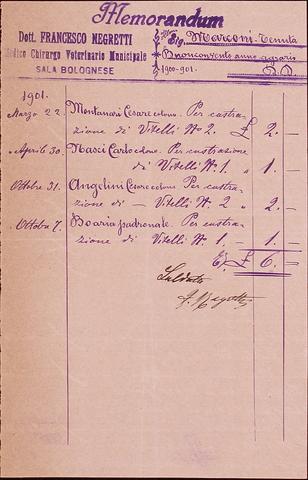 Memorandum
Dott. FRANCESCO NEGRETTI
Medico Chirurgo Veterinario Municipale
SALA BOLOGNESE
Sig. Marconi - Tenuta
Buonconvento anno agrario
1900-901.
1901.
Marzo 22. Montanari Cesare colono. Per castra-
zione di Vitelli N° 2. £ 2. —
" Aprile 30. Nasci Carlo colono. Per castrazione
di Vitelli N° 1. " 1. —
" Ottobre 31. Angelini Cesare colono. Per castra-
zione di — Vitelli N° 2 " 2. —
" Ottobre 7. Boaria padronale. Per castra-
zione di Vitelli N° 1. — 1. —
£ 6. —
Saldato
F. Negretti